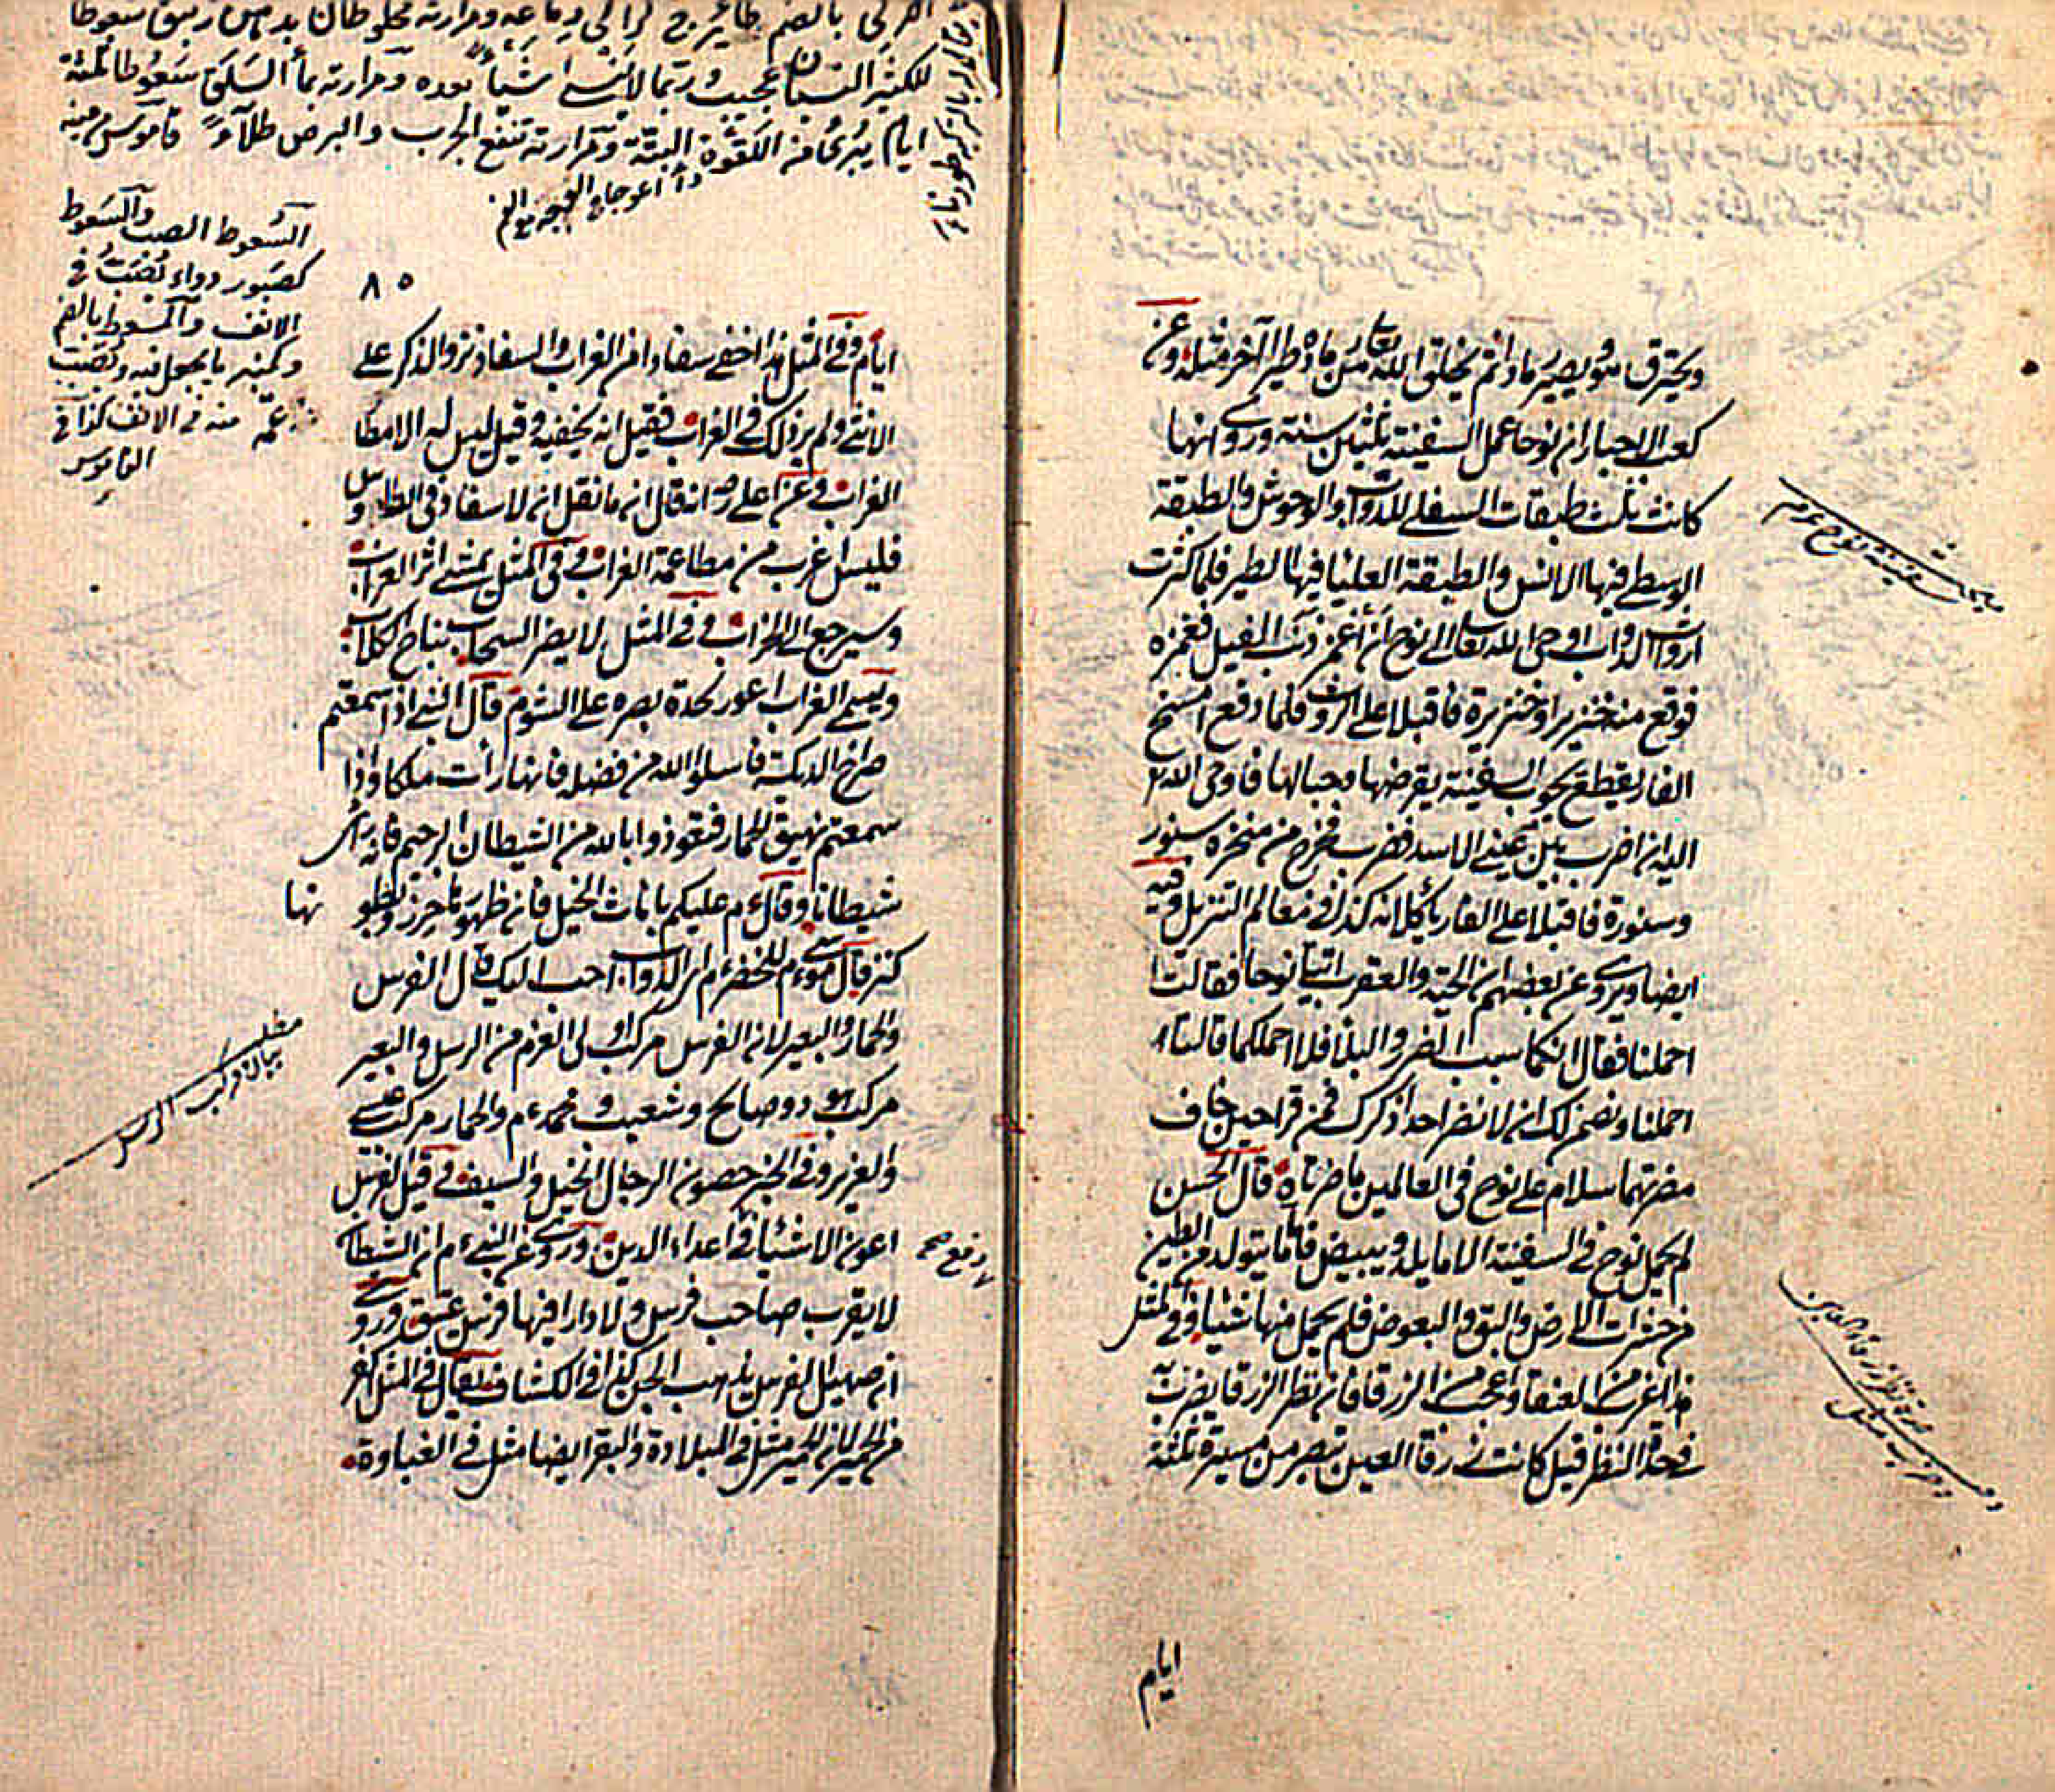 ويحترق هو ويصير مادا ثم يخلق الله تعالى من ماده طيرا آخر مثله وعن
كعب الاحبار ان نوحا عمل السفينة ثلثين سنة وروى انها
كانت ثلث طبقات السفلى للدواب والوحوش والطبقة
الوسطى فيها الانس والطبقة العليا فيها الطير فلما كثرت
ارواث الدواب اوحى الله تعالى الى نوح ان اغمز ذنب الفيل فغمزه
فوقع منه خنزير او خنزيرة فاقبلا على الروث فلما وقع
الفار يقطع السفينة يقرضها وحبالها فاوحى الله
اليه ان اضرب بين عينى الاسد فضرب فخرج من منخره سنور
وسنورة فاقبلا على الفار ياكلانه كذا فى معالم التنزيل وفيه
ايضا ويروى عن بعضهم ان الحية والعقرب اتيا نوحا فقالتا
احملنا فقال انكما سبب الضر والبلا فلا احملكما قالتا
احملنا ونضمن لك ان لا نضر احدا ذكرك فمن قرا حين خاف
مضرتهما سلام على نوح فى العالمين ما ضرتاه قال الحسن
لم يحمل نوح فى السفينة الا ما يلد ويبيض فاما ما يتولد من الطين
من حشرات الارض والبق والبعوض فلم يحمل منها شيئا وفى المثل
هذا اغرب من العنقا واعجب من الزرقا فان نظر الزرقا يضرب
فى حدة النظر قيل كانت زرقا العين تبصر من مسيرة ثلثة
ايام
سفينة نوح عم
للكثير النسيان عجيب وربما لا ينسى شيئا بعده ومرارته بماء السلق سعوطا ثلثة
ايام يبرئ من اللقوة البتة ومرارته تنفع الجرب والبرص طلاء قاموس
داء اعوجاج الوجه مع الفم
السعوط الصب والسعوط
كصبور دواء يصب فى
الانف والمسعط بالضم
وكمنبر ما يجعل فيه ويصب
منه فى الانف كذا فى
القاموس
٨٥
ايام وفى المثل هذا اخفى سفادا من الغراب والسفاد نزو الذكر على
الانثى ولم ير ذلك فى الغراب فقيل انه يخفيه وقيل ليس له الا مطا
الغراب وعن على رض انه قال انه ما نقل انه لا سفاد فى الطاوس
فليس اغرب من مطاعمة الغراب وفى المثل يمشى اثر الغراب
وسيرجع الى الخراب وفى المثل لا يضر السحاب نباح الكلاب
ويسمى الغراب اعور لحدة بصره على الشوم قال النبى اذا سمعتم
صراخ الديكة فاسلوا الله من فضله فانها رات ملكا واذا
سمعتم نهيق الحمار فتعوذوا بالله من الشيطان الرجيم فانه راى
شيطانا وقال عم عليكم باناث الخيل فان ظهورها حرز وبطو نها
كنز قال موسى عم للخضر عم اى الدواب احب اليك قال الفرس
والحمار والبعير لان الفرس مركب اولى العزم من الرسل والبعير
مركب هود وصالح وشعيب ومحمد عم والحمار مركب عيسى
والعزير وفى الخبر حصون الرجال الخيل والسيف وقيل الفرس
اعون الاشياء فى اعداء الدين وروى عن النبى عم ان الشيطان
لا يقرب صاحب فرس ولا دارا فيها فرس عتيق وروى
ان صهيل الفرس يذهب الجن كذا فى الكشاف يقال فى المثل
من الحمير لان الحمير مثل فى البلادة والبقر ايضا مثل فى الغباوة
دفع صح
مطلب
بيان مركب الرسل